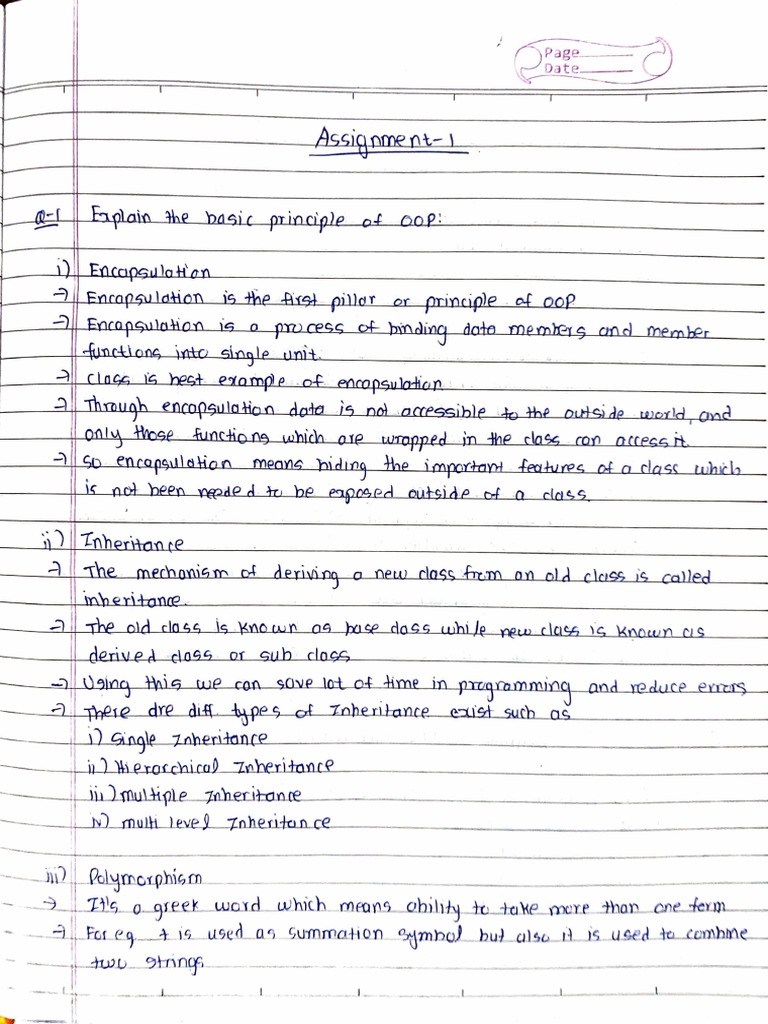 Page
Date
Assignment-1
Q-1 Explain the basic principle of OOP:
i) Encapsulation
→ Encapsulation is the first pillar or principle of OOP
→ Encapsulation is a process of binding data members and member
functions into single unit.
→ class is best example of encapsulation.
→ Through encapsulation data is not accessible to the outside world, and
only those functions which are wrapped in the class can access it.
→ so encapsulation means hiding the important features of a class which
is not been needed to be exposed outside of a class.
ii) Inheritance
→ The mechanism of deriving a new class from an old class is called
inheritance.
→ The old class is known as base class while new class is known as
derived class or sub class
→ Using this we can save lot of time in programming and reduce errors
→ There are diff types of Inheritance exist such as
i) Single Inheritance
ii) Hierarchical Inheritance
iii) multiple Inheritance
iv) multi level Inheritance
iii) Polymorphism
→ It's a greek word which means ability to take more than one form
→ For eg + is used as summation symbol but also it is used to combine
two strings.